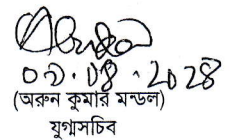 ০৯.০৪.২০২৪
(অরুন কুমার মন্ডল)
যুগ্মসচিব